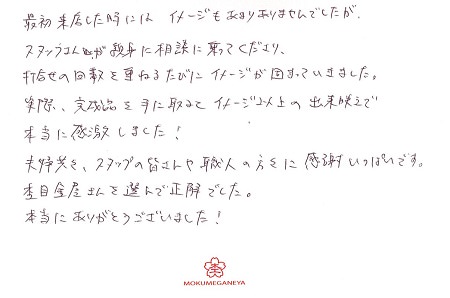 最初来店した時には イメージもあまりありませんでしたが、
スタッフさんが親身に相談に乗ってくださり、
打合せの回数を重ねるたびにイメージが固まっていきました。
実際、完成品を手に取るとイメージ以上の出来映えで
本当に感激しました！
夫婦共々、スタッフの皆さんや職人の方々に感謝いっぱいです。
杢目金屋さんを選んで正解でした。
本当にありがとうございました！
MOKUMEGANEYA